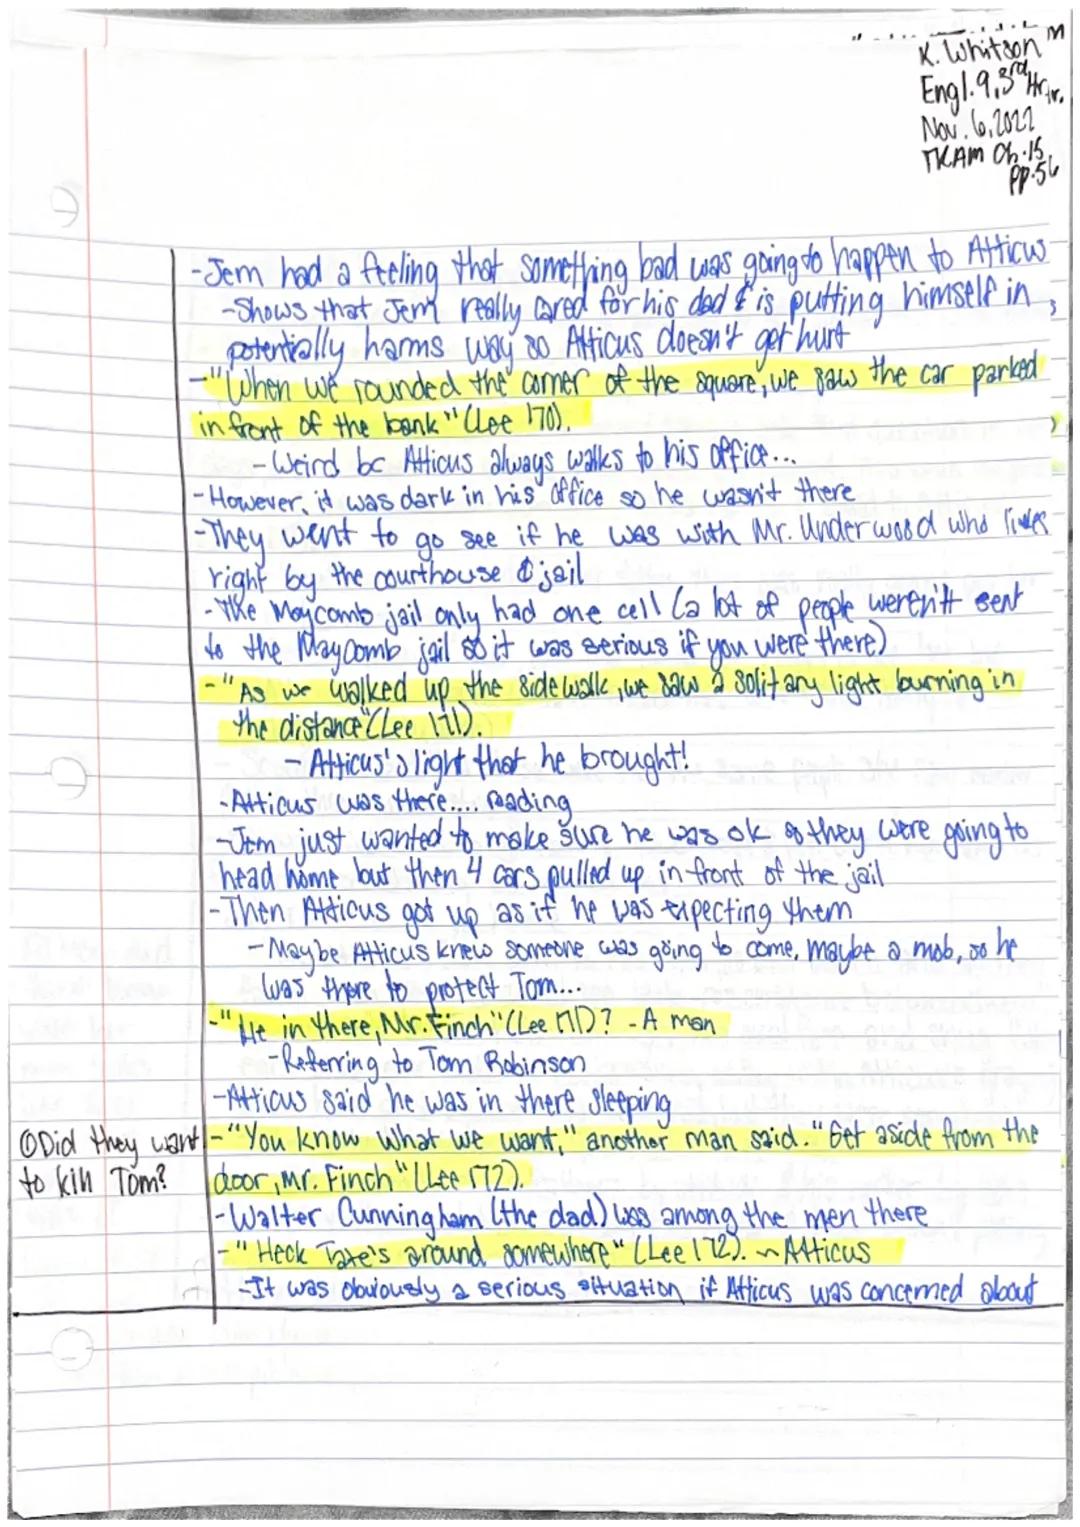 K. Whitson
Engl. 9, 3rd Hr.
Nov. 6, 2022
TKAM Ch. 15
pp. 56
-Jem had a feeling that something bad was going to happen to Atticus
-Shows that Jem really cared for his dad & is putting himself in
potentially harms way so Atticus doesn't get hurt
-"When we rounded the corner of the square, we saw the car parked
in front of the bank" (Lee 170).
-Weird bc Atticus always walks to his office...
-However, it was dark in his office so he wasn't there
-They went to go see if he was with Mr. Underwood who lives
right by the courthouse & jail
-The Maycomb jail only had one cell (a lot of people weren't sent
to the Maycomb jail so it was serious if you were there)
-"As we walked up the sidewalk, we saw a solitary light burning in
the distance" (Lee 171).
- Atticus's light that he brought!
-Atticus was there.... reading
-Jem just wanted to make sure he was ok so they were going to
head home but then 4 cars pulled up in front of the jail
-Then Atticus got up as if he was expecting them
-Maybe Atticus knew someone was going to come, maybe a mob, so he
was there to protect Tom...
-"He in there, Mr. Finch" (Lee 171)? -A man
-Referring to Tom Robinson
-Atticus said he was in there sleeping
①Did they want
to kill Tom?
-"You know what we want," another man said. "Get aside from the
door, Mr. Finch" (Lee 172).
-Walter Cunningham (the dad) was among the men there
-"Heck Tate's around somewhere" (Lee 172). ~Atticus
-It was obviously a serious situation if Atticus was concerned about